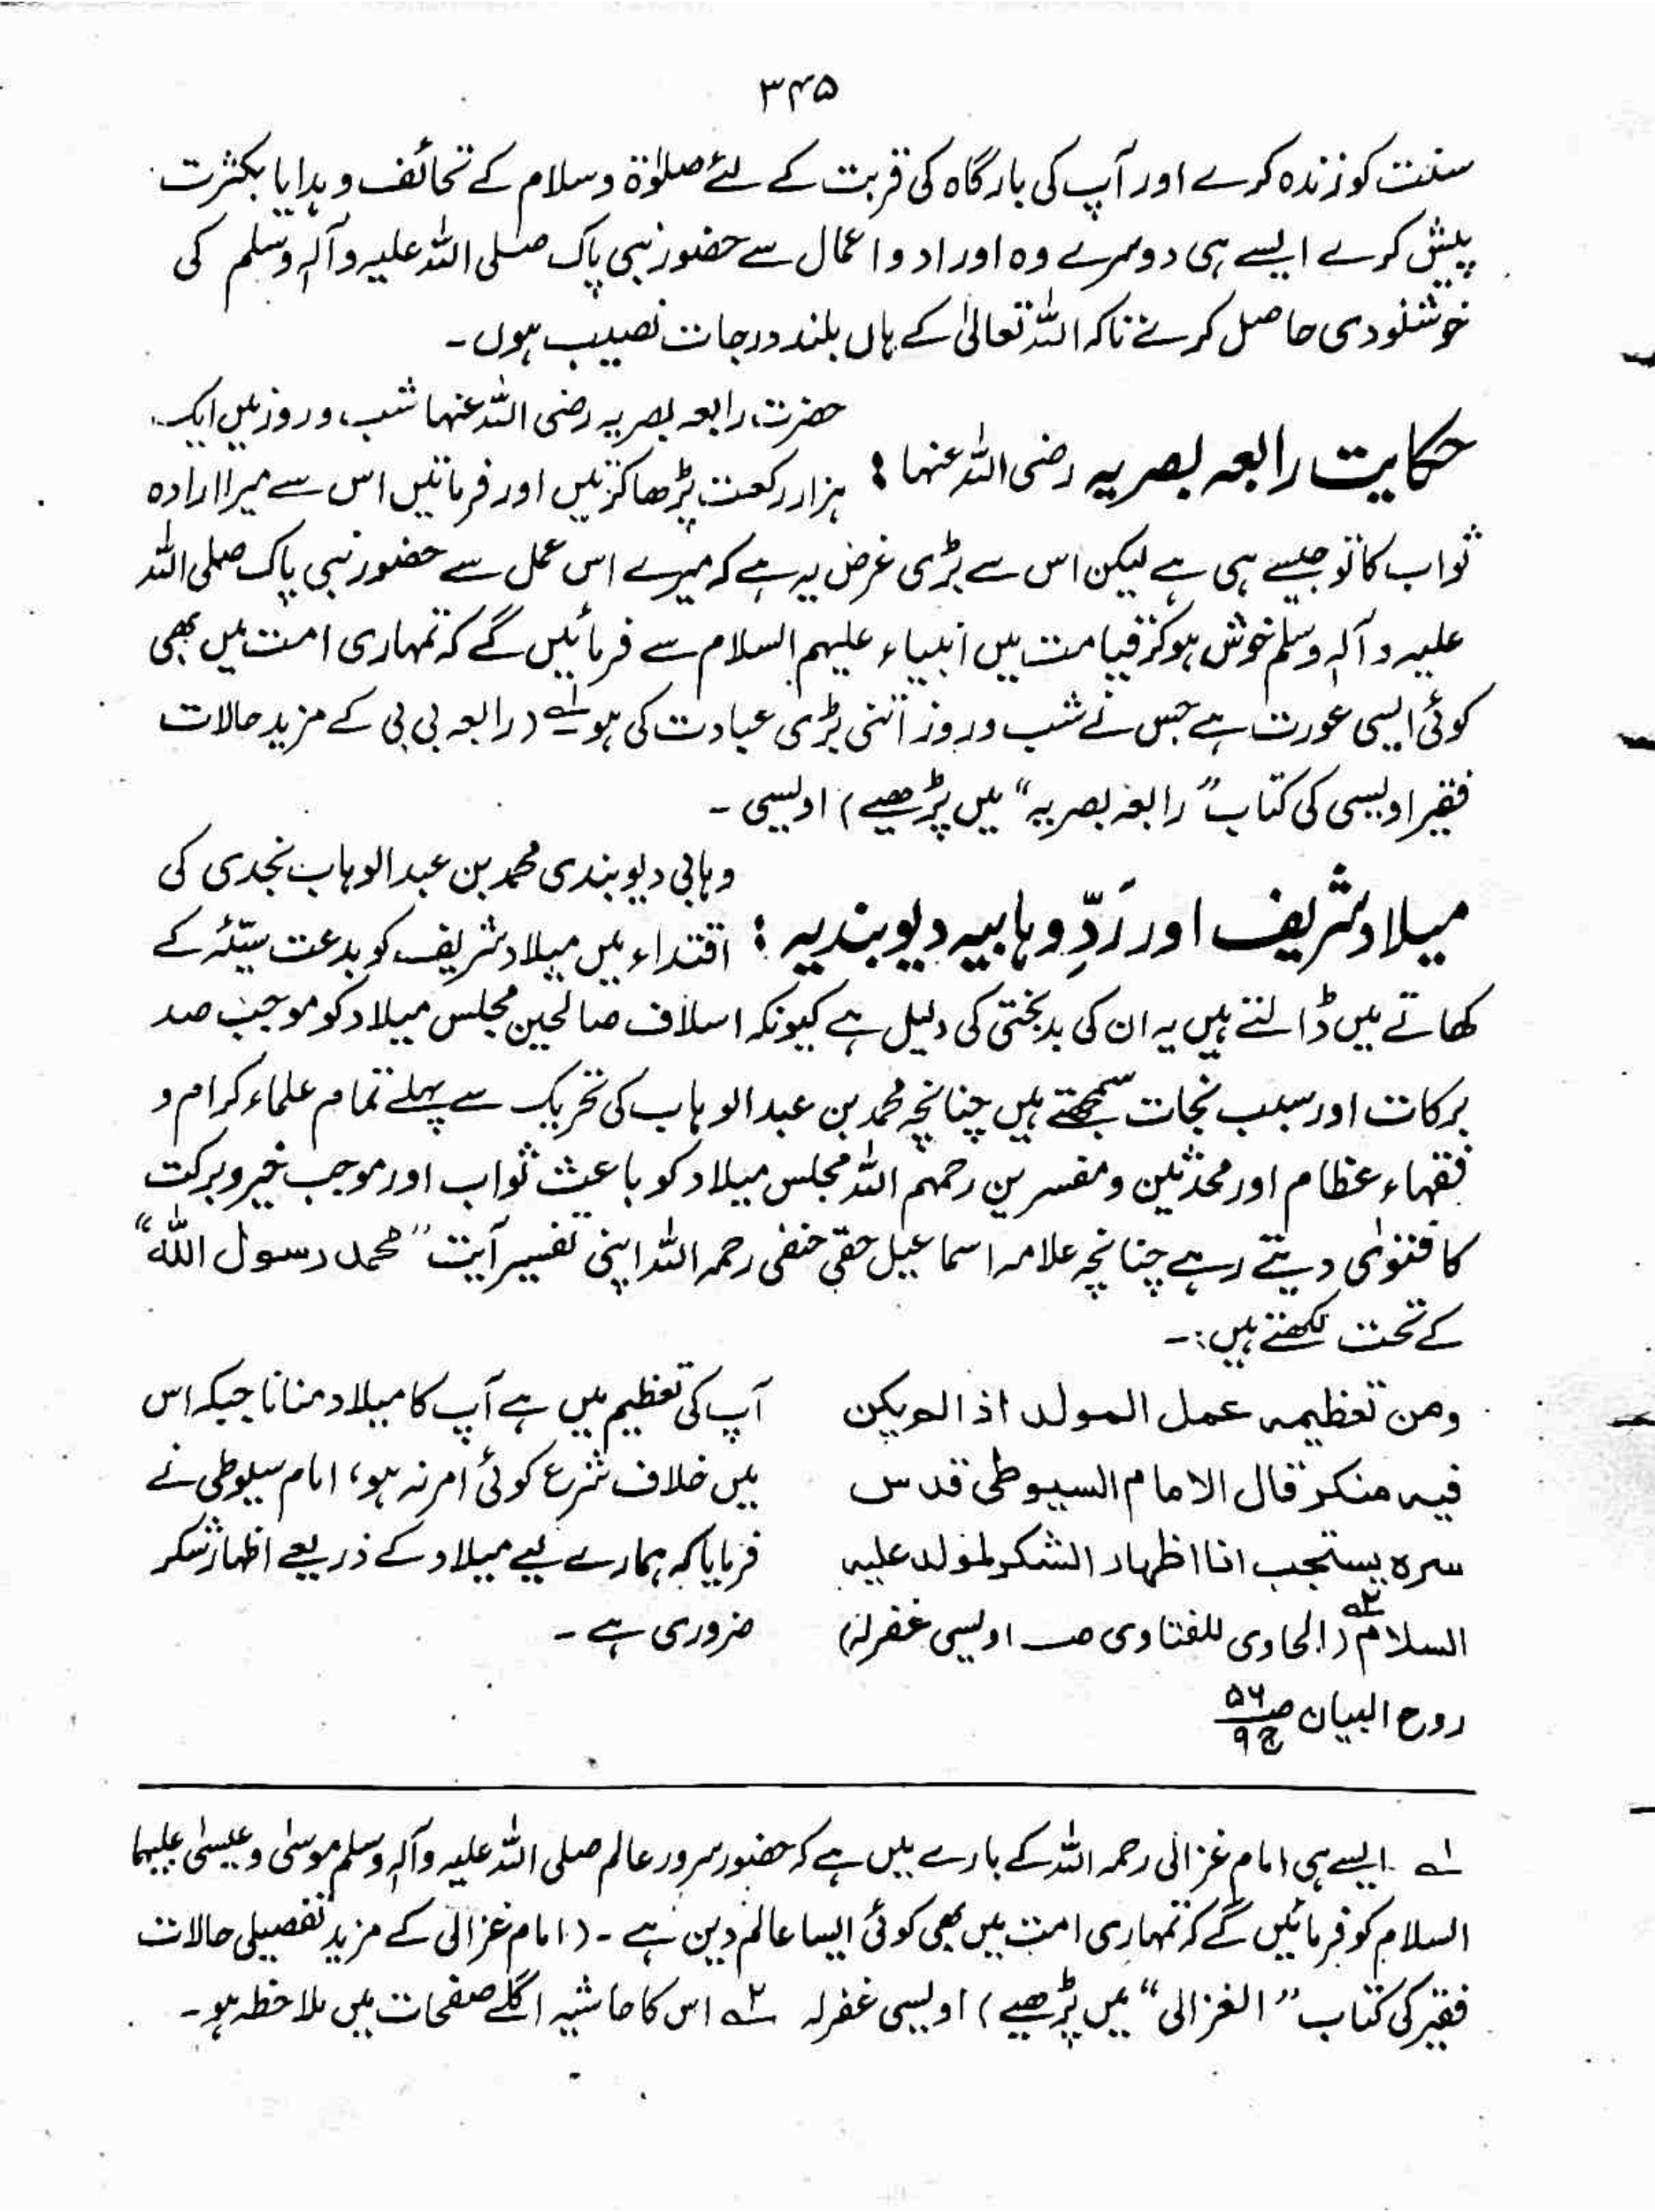 ۳۴۵
سنت کو زندہ کرے اور آپ کی بارگاہ کی قربت کے لئے صلوٰۃ و سلام کے تحائف و ہدایا بکثرت
پیش کرے ایسے ہی دوسرے وہ اوراد و اعمال سے حضور نبی پاک صلی اللہ علیہ وآلہ وسلم کی
خوشنودی حاصل کرے تاکہ اللہ تعالیٰ کے ہاں بلند درجات نصیب ہوں۔
حکایت رابعہ بصریہ رضی اللہ عنہا : حضرت رابعہ بصریہ رضی اللہ عنہا شب و روز میں ایک
ہزار رکعت پڑھا کرتیں اور فرماتیں اس سے میرا ارادہ
ثواب کا تو جیسے ہی ہے لیکن اس سے بڑی غرض یہ ہے کہ میرے اس عمل سے حضور نبی پاک صلی اللہ
علیہ وآلہ وسلم خوش ہو کر قیامت میں انبیاء علیہم السلام سے فرمائیں گے کہ تمہاری امت میں بھی
کوئی ایسی عورت ہے جس نے شب و روز اتنی بڑی عبادت کی ہو ۱ے (رابعہ بی بی کے مزید حالات
فقیر اویسی کی کتاب "رابعہ بصریہ" میں پڑھیے) اویسی ۔
میلاد شریف اور رَدِّ وہابیہ دیوبندیہ : وہابی دیوبندی محمد بن عبد الوہاب نجدی کی
اقتداء میں میلاد شریف کو بدعت سیّئہ کے
کھاتے میں ڈالتے ہیں یہ ان کی بدبختی کی دلیل ہے کیونکہ اسلاف صالحین مجلس میلاد کو موجب صد
برکات اور سبب نجات سمجھتے ہیں چنانچہ محمد بن عبد الوہاب کی تحریک سے پہلے تمام علماء کرام و
فقہاء عظام اور محدثین و مفسرین رحمہم اللہ مجلس میلاد کو باعث ثواب اور موجب خیر و برکت
کا فتویٰ دیتے رہے چنانچہ علامہ اسماعیل حقی حنفی رحمہ اللہ اپنی تفسیر آیت "محمد رسول اللہ"
کے تحت لکھتے ہیں:۔
ومن تعظیمہ عمل المولد اذا لم یکن
فیہ منکر قال الامام السیوطی قدس
سرہ یستحب لنا اظهار الشکر لمولد علیہ
السلام ۲ے (الحاوی للفتاوی صـ اویسی غفرلہ)
روح البیان صـ ۵۶ ج ۹
آپ کی تعظیم میں ہے آپ کا میلاد منانا جبکہ اس
میں خلاف شرع کوئی امر نہ ہو، امام سیوطی نے
فرمایا کہ ہمارے لیے میلاد کے ذریعے اظہار شکر
ضروری ہے ۔
۱ے ایسے ہی امام غزالی رحمہ اللہ کے بارے میں ہے کہ حضور سرور عالم صلی اللہ علیہ وآلہ وسلم موسیٰ و عیسیٰ علیہما
السلام کو فرمائیں گے کہ تمہاری امت میں بھی کوئی ایسا عالم دین ہے ۔ (امام غزالی کے مزید تفصیلی حالات
فقیر کی کتاب "الغزالی" میں پڑھیے) اویسی غفرلہ ۲ے اس کا حاشیہ اگلے صفحات میں ملاحظہ ہو۔